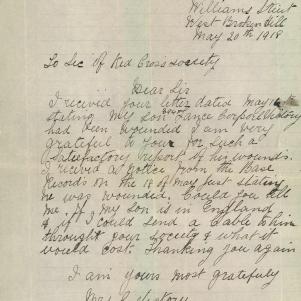 Williams Street
West Broken Hill
May 20th 1918
To Sec of Red Cross Society
Dear Sir
I received your letter dated May 16th
stating my son Lance Corporal History
had been wounded I am very
grateful to your for such a
satisfactory report of his wounds.
I received a notice from the Base
Records on the 18 of May just stating
he was wounded. Could you tell
me if my son is in England
& if I could send a cable to him
through your society & what it
would cost. Thanking you again
I am yours most gratefully
Mrs